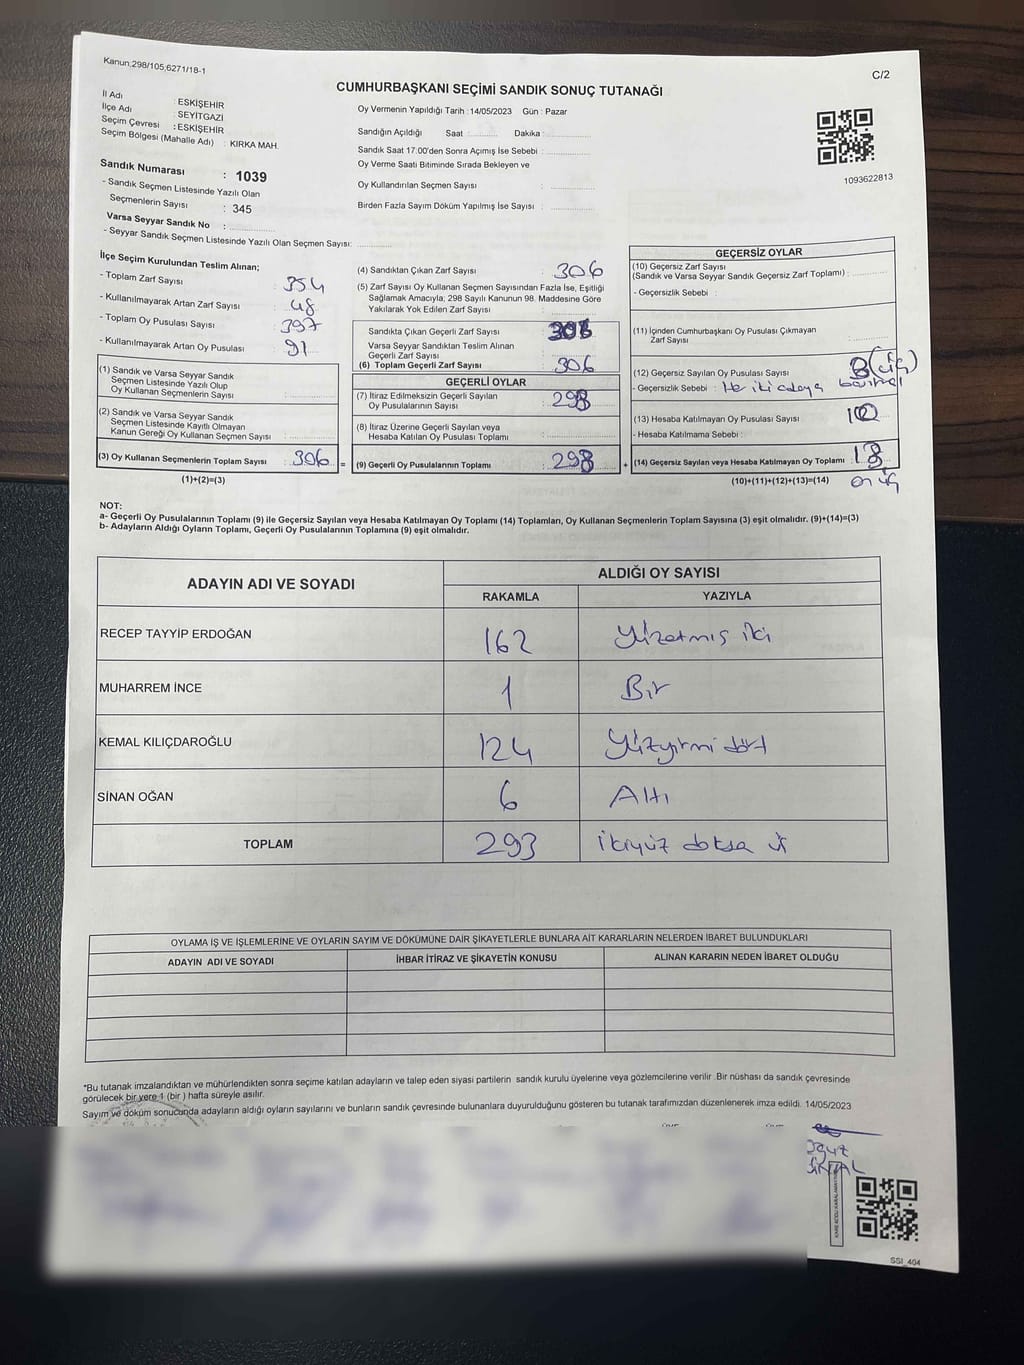 Kanun;298/105,6271/18-1
C/2
CUMHURBAŞKANI SEÇİMİ SANDIK SONUÇ TUTANAĞI
İl Adı : ESKİŞEHİR
İlçe Adı : SEYİTGAZİ
Seçim Çevresi : ESKİŞEHİR
Seçim Bölgesi (Mahalle Adı) : KIRKA MAH.
Oy Vermenin Yapıldığı Tarih : 14/05/2023 Gün : Pazar
Sandığın Açıldığı Saat : Dakika :
Sandık Saat 17:00'den Sonra Açımış İse Sebebi :
Oy Verme Saati Bitiminde Sırada Bekleyen ve
Oy Kullandırılan Seçmen Sayısı :
Birden Fazla Sayım Döküm Yapılmış İse Sayısı :
1093622813
Sandık Numarası : 1039
- Sandık Seçmen Listesinde Yazılı Olan
Seçmenlerin Sayısı : 345
Varsa Seyyar Sandık No :
- Seyyar Sandık Seçmen Listesinde Yazılı Olan Seçmen Sayısı:
İlçe Seçim Kurulundan Teslim Alınan;
- Toplam Zarf Sayısı : 354
- Kullanılmayarak Artan Zarf Sayısı : 48
- Toplam Oy Pusulası Sayısı : 397
- Kullanılmayarak Artan Oy Pusulası : 91
(1) Sandık ve Varsa Seyyar Sandık
Seçmen Listesinde Yazılı Olup
Oy Kullanan Seçmenlerin Sayısı :
(2) Sandık ve Varsa Seyyar Sandık
Seçmen Listesinde Kayıtlı Olmayan
Kanun Gereği Oy Kullanan Seçmen Sayısı :
(3) Oy Kullanan Seçmenlerin Toplam Sayısı : 306 =
(1)+(2)=(3)
(4) Sandıktan Çıkan Zarf Sayısı : 306
(5) Zarf Sayısı Oy Kullanan Seçmen Sayısından Fazla İse, Eşitliği
Sağlamak Amacıyla; 298 Sayılı Kanunun 98. Maddesine Göre
Yakılarak Yok Edilen Zarf Sayısı :
Sandıkta Çıkan Geçerli Zarf Sayısı : 306
Varsa Seyyar Sandıktan Teslim Alınan
Geçerli Zarf Sayısı :
(6) Toplam Geçerli Zarf Sayısı : 306
GEÇERLİ OYLAR
(7) İtiraz Edilmeksizin Geçerli Sayılan
Oy Pusulalarının Sayısı :
(8) İtiraz Üzerine Geçerli Sayılan veya
Hesaba Katılan Oy Pusulası Toplamı :
(9) Geçerli Oy Pusulalarının Toplamı : +
GEÇERSİZ OYLAR
(10) Geçersiz Zarf Sayısı
(Sandık ve Varsa Seyyar Sandık Geçersiz Zarf Toplamı) :
- Geçersizlik Sebebi :
(11) İçinden Cumhurbaşkanı Oy Pusulası Çıkmayan
Zarf Sayısı :
(12) Geçersiz Sayılan Oy Pusulası Sayısı : 3 (üç)
- Geçersizlik Sebebi : Her iki adaya
(13) Hesaba Katılmayan Oy Pusulası Sayısı : 10
- Hesaba Katılmama Sebebi :
(14) Geçersiz Sayılan veya Hesaba Katılmayan Oy Toplamı : 13
(10)+(11)+(12)+(13)=(14) on üç
NOT:
a- Geçerli Oy Pusulalarının Toplamı (9) ile Geçersiz Sayılan veya Hesaba Katılmayan Oy Toplamı (14) Toplamları, Oy Kullanan Seçmenlerin Toplam Sayısına (3) eşit olmalıdır. (9)+(14)=(3)
b- Adayların Aldığı Oyların Toplamı, Geçerli Oy Pusulalarının Toplamına (9) eşit olmalıdır.
ADAYIN ADI VE SOYADI
ALDIĞI OY SAYISI
RAKAMLA YAZIYLA
RECEP TAYYİP ERDOĞAN 162 Yüzatmış iki
MUHARREM İNCE 1 Bir
KEMAL KILIÇDAROĞLU 124 Yüzyirmi dört
SİNAN OĞAN 6 Altı
TOPLAM 293 ikiyüz doksa üç
OYLAMA İŞ VE İŞLEMLERİNE VE OYLARIN SAYIM VE DÖKÜMÜNE DAİR ŞİKAYETLERLE BUNLARA AİT KARARLARIN NELERDEN İBARET BULUNDUKLARI
ADAYIN ADI VE SOYADI İHBAR İTİRAZ VE ŞİKAYETİN KONUSU ALINAN KARARIN NEDEN İBARET OLDUĞU
*Bu tutanak imzalandıktan ve mühürlendikten sonra seçime katılan adayların ve talep eden siyasi partilerin sandık kurulu üyelerine veya gözlemcilerine verilir .Bir nüshası da sandık çevresinde
görülecek bir yere 1 (bir ) hafta süreyle asılır.
Sayım ve döküm sonucunda adayların aldığı oyların sayılarını ve bunların sandık çevresinde bulunanlara duyurulduğunu gösteren bu tutanak tarafımızdan düzenlenerek imza edildi. 14/05/2023
Oğuz
SSI_404